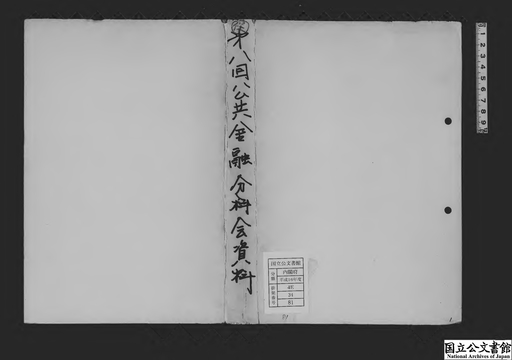 第八回公共金融分科会資料
国立公文書館
内閣府
平成18年度
4E
21
81
1 2 3 4 5 6 7 8 9
国立公文書館
National Archives of Japan